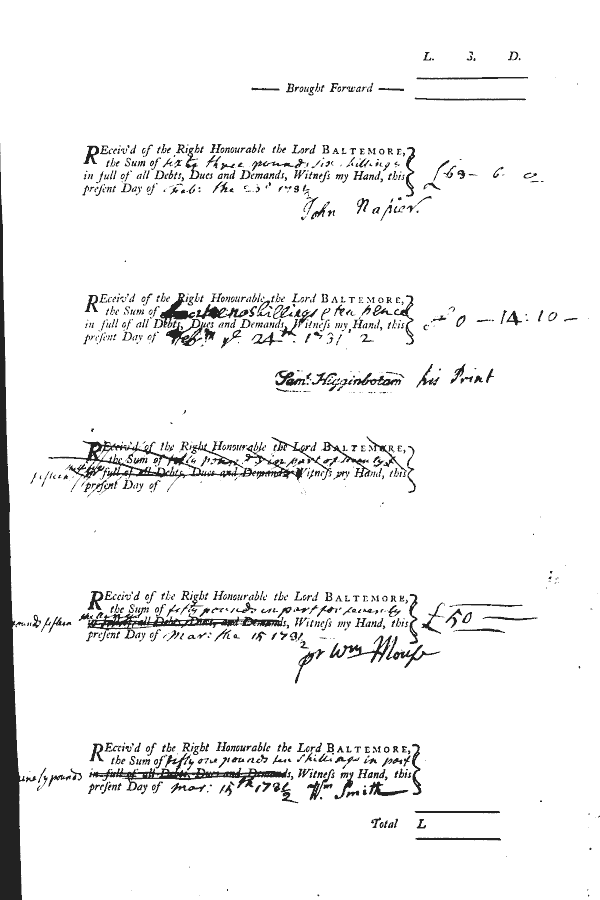 L. S. D.
Brought Forward
REceiv'd of the Right Honourable the Lord BALTEMORE,
the Sum of sixty three pounds six shillings
in full of all Debts, Dues and Demands, Witness my Hand, this
present Day of Feb: the
£63 - 6
John Napier.
REceiv'd of the Right Honourable the Lord BALTEMORE,
the Sum of shillings & ten pence
in full of all Debts, Dues and Demands, Witness my Hand, this
present Day of 24th 1731 2
0 - 14: 10 -
Saml. Higginbotam his Print
REceiv'd of the Right Honourable the Lord BALTEMORE,
the Sum of pounds in part of
fifteen in full of all Debts, Dues and Demands Witness my Hand, this
present Day of
REceiv'd of the Right Honourable the Lord BALTEMORE,
the Sum of fifty pounds in part for seventy
pounds fifteen in full of all Debts, Dues, and Demands, Witness my Hand, this
present Day of Mar: the 15 1731 2
£50
pr Wm
REceiv'd of the Right Honourable the Lord BALTEMORE,
the Sum of fifty one pounds ten Shillings in part
ninety pounds in full of all Debts, Dues and Demands, Witness my Hand, this
present Day of mar: 15th 173 2 Wm Smith
Total L